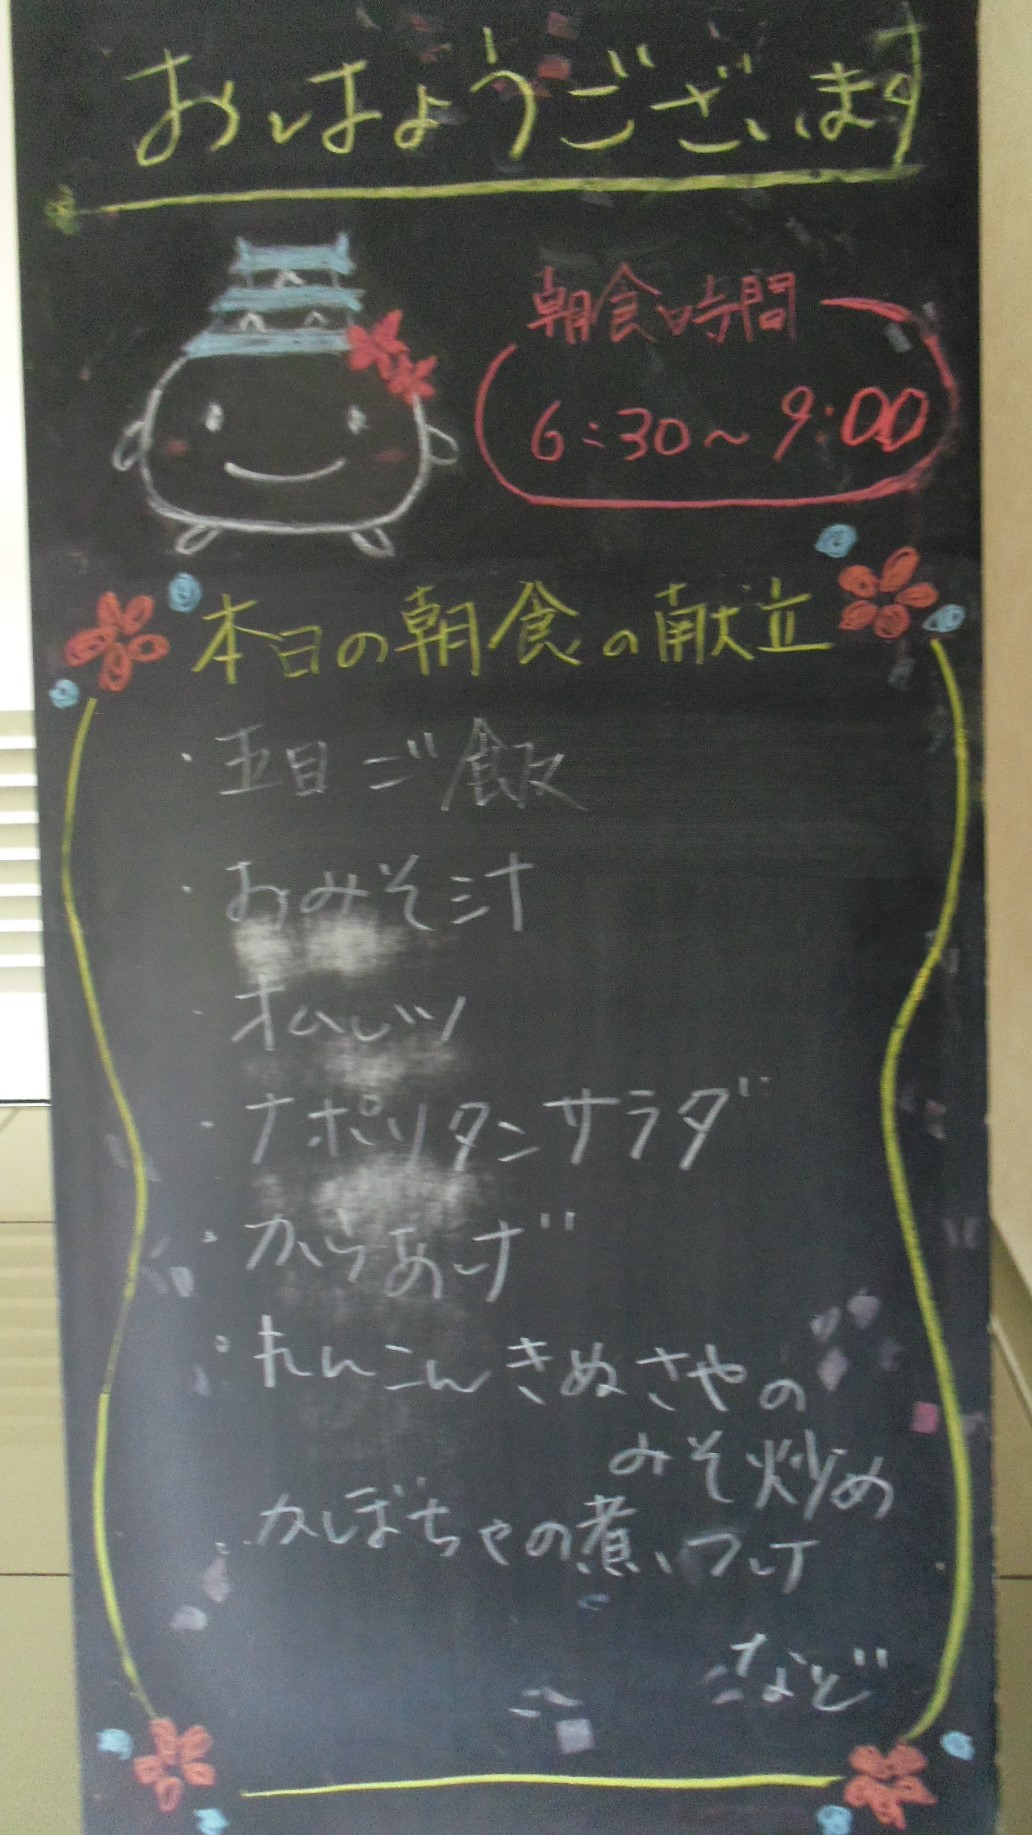 おはようございます
朝食時間
6:30～9:00
本日の朝食の献立
・五目ご飯
・おみそ汁
・オムレツ
・ナポリタンサラダ
・からあげ
・れんこんきぬさやの
みそ炒め
・かぼちゃの煮つけ
など